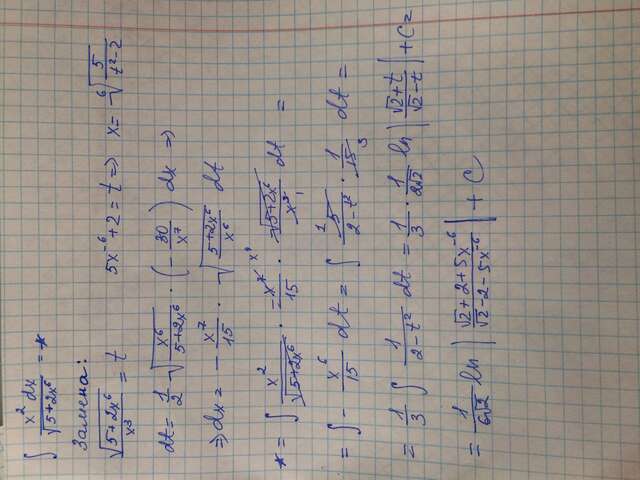 ∫ x² dx / √(5+2x⁶) = *
Замена:
√(5+2x⁶) / x³ = t    5x⁻⁶+2 = t ⇒ x = ⁶√(5 / (t²-2))
dt = 1/2 √(x⁶ / (5+2x⁶)) · (- 30/x⁷) dx ⇒
⇒ dx = - x⁷/15 · √((5+2x⁶) / x⁶) dt
* = ∫ x² / √(5+2x⁶) · -x⁷/15 · √(5+2x⁶) / x³ dt =
= ∫ - x⁶/15 dt = ∫ 5 / (2-t²) · 1/15 dt =
= 1/3 ∫ 1 / (2-t²) dt = 1/3 · 1/(2√2) ln |(√2+t) / (√2-t)| + C =
= 1/(6√2) ln |(√2+2+5x⁻⁶) / (√2-2-5x⁻⁶)| + C